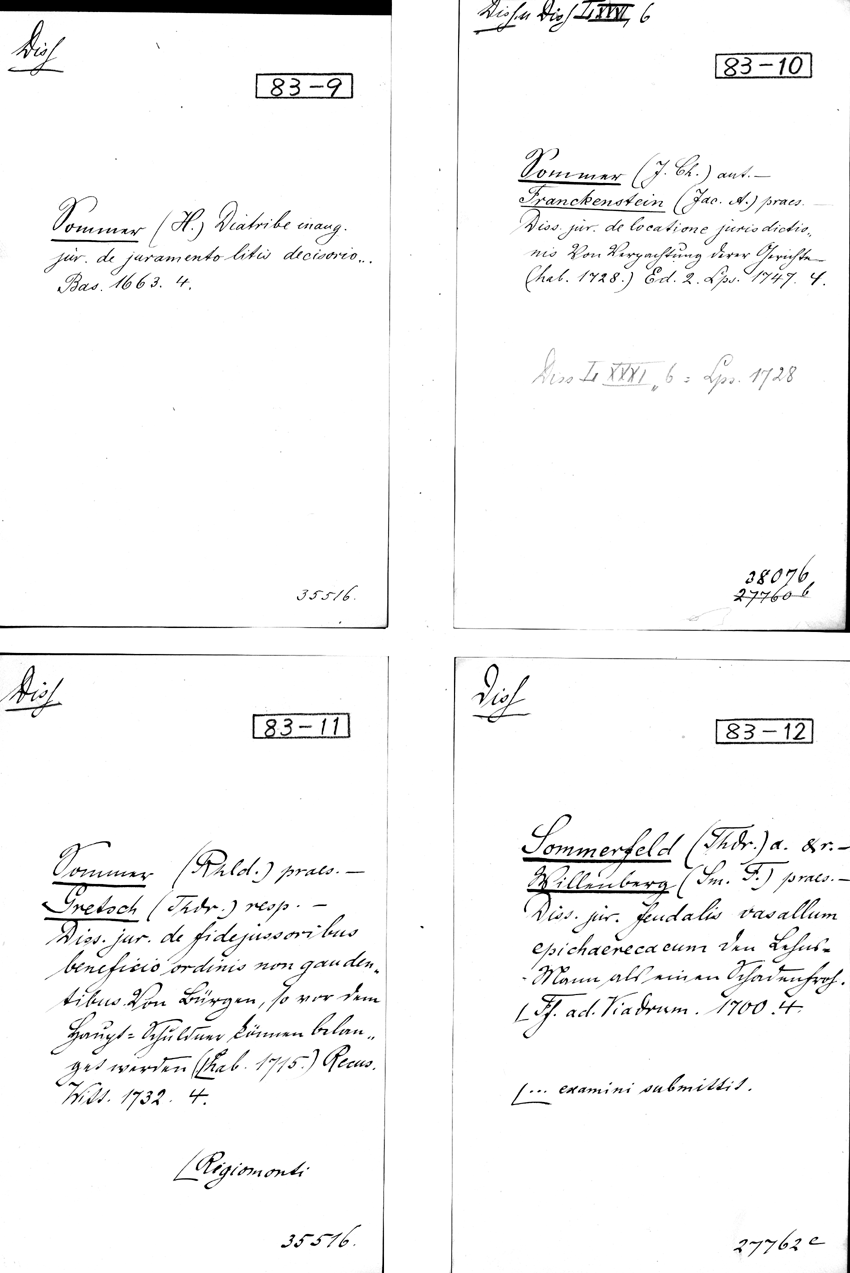 Diss
83-9
Sommer (H.) Diatribe inaug.
jur. de juramento litis decisorio...
Bas. 1663. 4.
35516.
Diss u Diss LXXXVI, 6
83-10
Sommer (J. Ch.) aut. —
Franckenstein (Jac. A.) praes. —
Diss. jur. de locatione jurisdictio„
nis Von Verpachtung derer Gerichte —
(hab. 1728.) Ed. 2. Lps. 1747. 4.
Diss LXXXI „ 6 = Lps. 1728
38076
27760 b
Diss
83-11
Sommer (Rhld.) praes. —
Gretsch (Thdr.) resp. —
Diss. jur. de fidejussoribus
beneficio ordinis non gauden„
tibus. Von Bürgen, so vor dem
Haupt=Schuldner können belan„
get werden (hab. 1715.) Recus.
Witt. 1732. 4.
[Regiomonti
35516.
Diss
83-12
Sommerfeld (Thdr.) a. & r. —
Willenberg (Sm. F.) praes. —
Diss. jur. feudalis vasallum
epichaerecacum den Lehns=
-Mann als einen Schadenfroh.
[Ff. ad. Viadrum. 1700. 4.
[... examini submittit.
27762 c